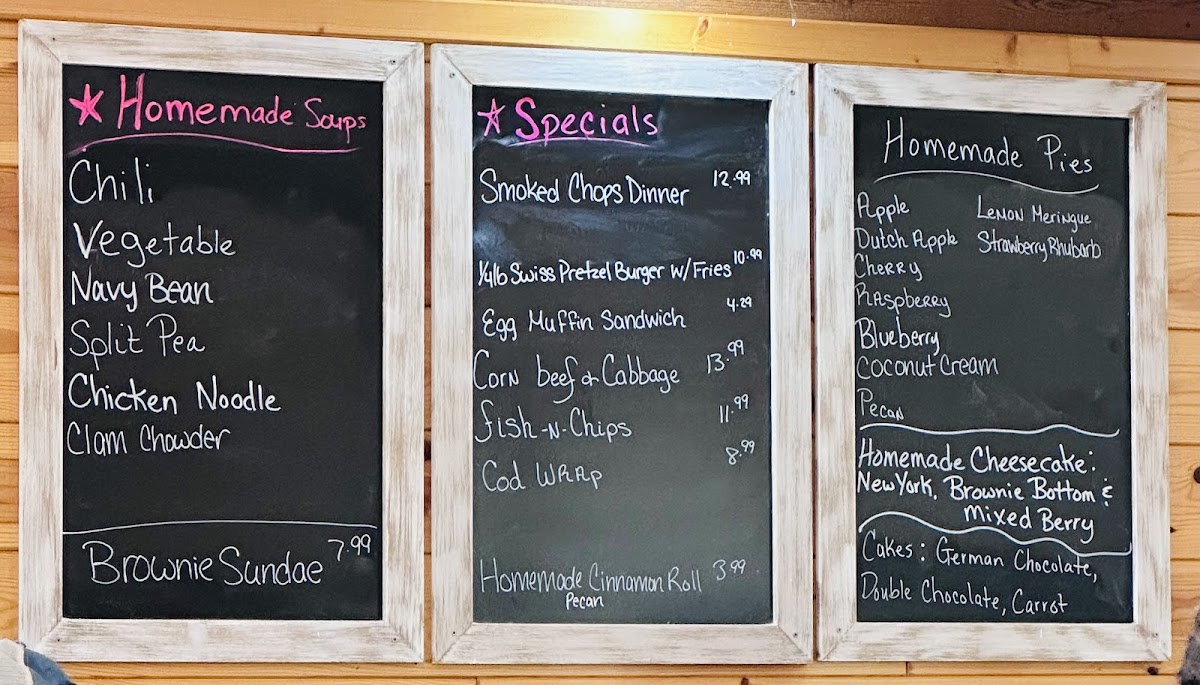 ★ Homemade Soups
Chili
Vegetable
Navy Bean
Split Pea
Chicken Noodle
Clam Chowder
Brownie Sundae 7.99
★ Specials
Smoked Chops Dinner 12.99
1/4lb Swiss Pretzel Burger w/ Fries 10.99
Egg Muffin Sandwich 4.29
Corn beef & Cabbage 13.99
fish-N-Chips 11.99
Cod Wrap 8.99
Homemade Cinnamon Roll 3.99
Pecan
Homemade Pies
Apple
Dutch Apple
Cherry
Raspberry
Blueberry
Coconut Cream
Pecan
Lemon Meringue
Strawberry Rhubarb
Homemade Cheesecake:
New York, Brownie Bottom &
Mixed Berry
Cakes: German Chocolate,
Double Chocolate, Carrot